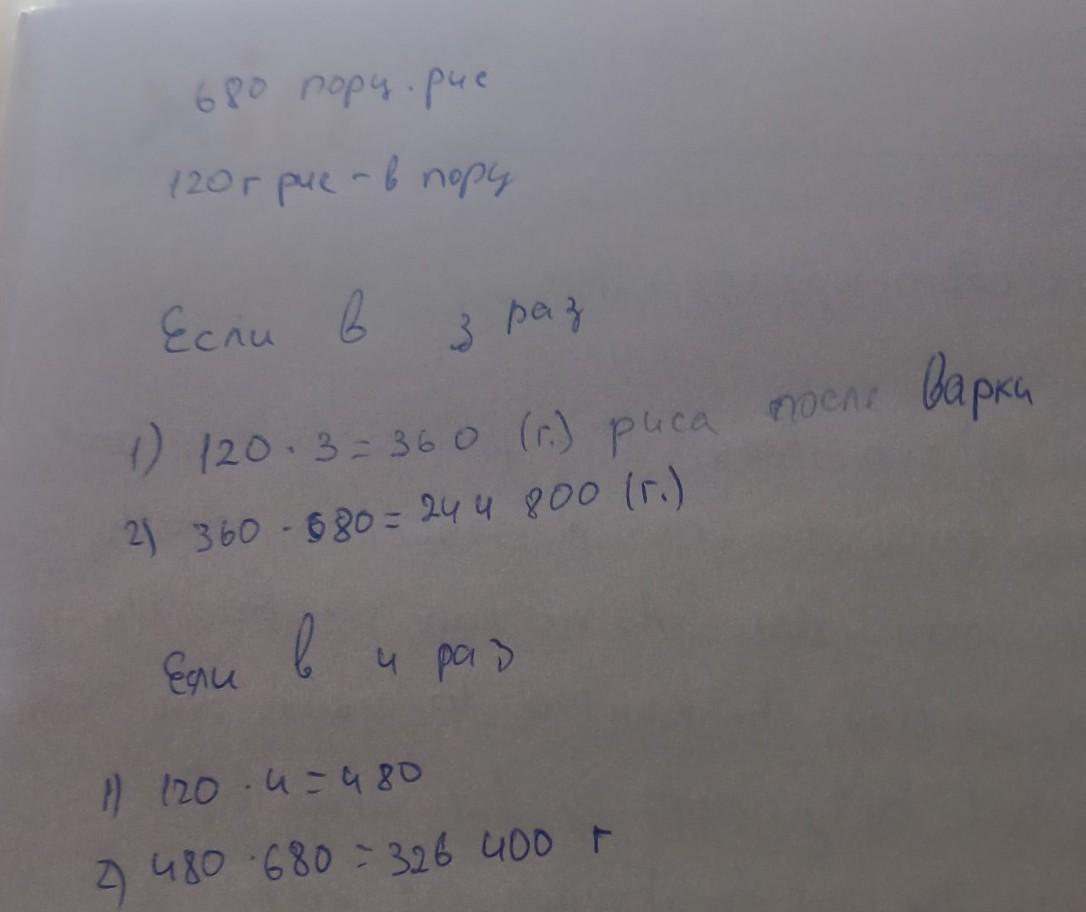 680 порц. рис
120г рис - в порц
Если в 3 раз
1) 120 · 3 = 360 (г.) риса после варки
2) 360 · 680 = 244 800 (г.)
Если в 4 раз
1) 120 · 4 = 480
2) 480 · 680 = 326 400 г